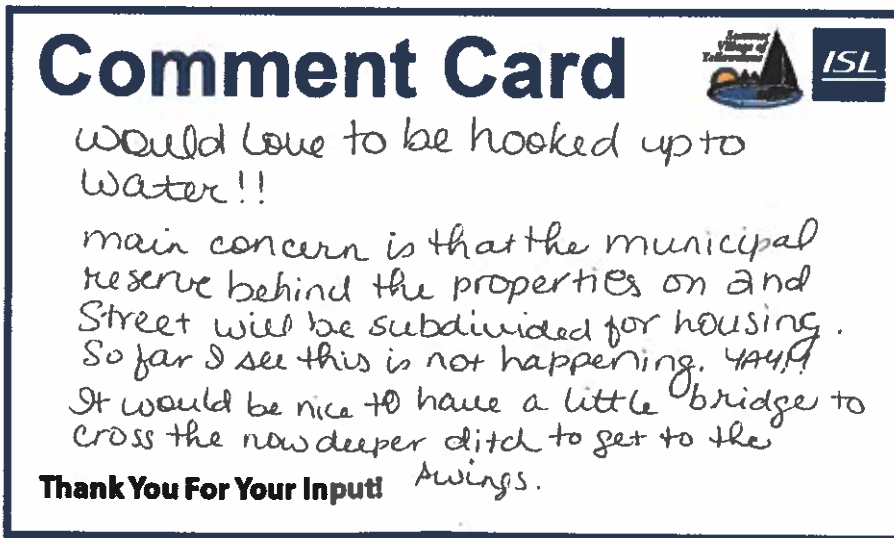 Comment Card
Summer
Village of
Yellowstone
ISL
would love to be hooked up to
water!!
main concern is that the municipal
reserve behind the properties on 2nd
Street will be subdivided for housing.
So far I see this is not happening. YAY!!
It would be nice to have a little bridge to
cross the now deeper ditch to get to the
swings.
Thank You For Your Input!